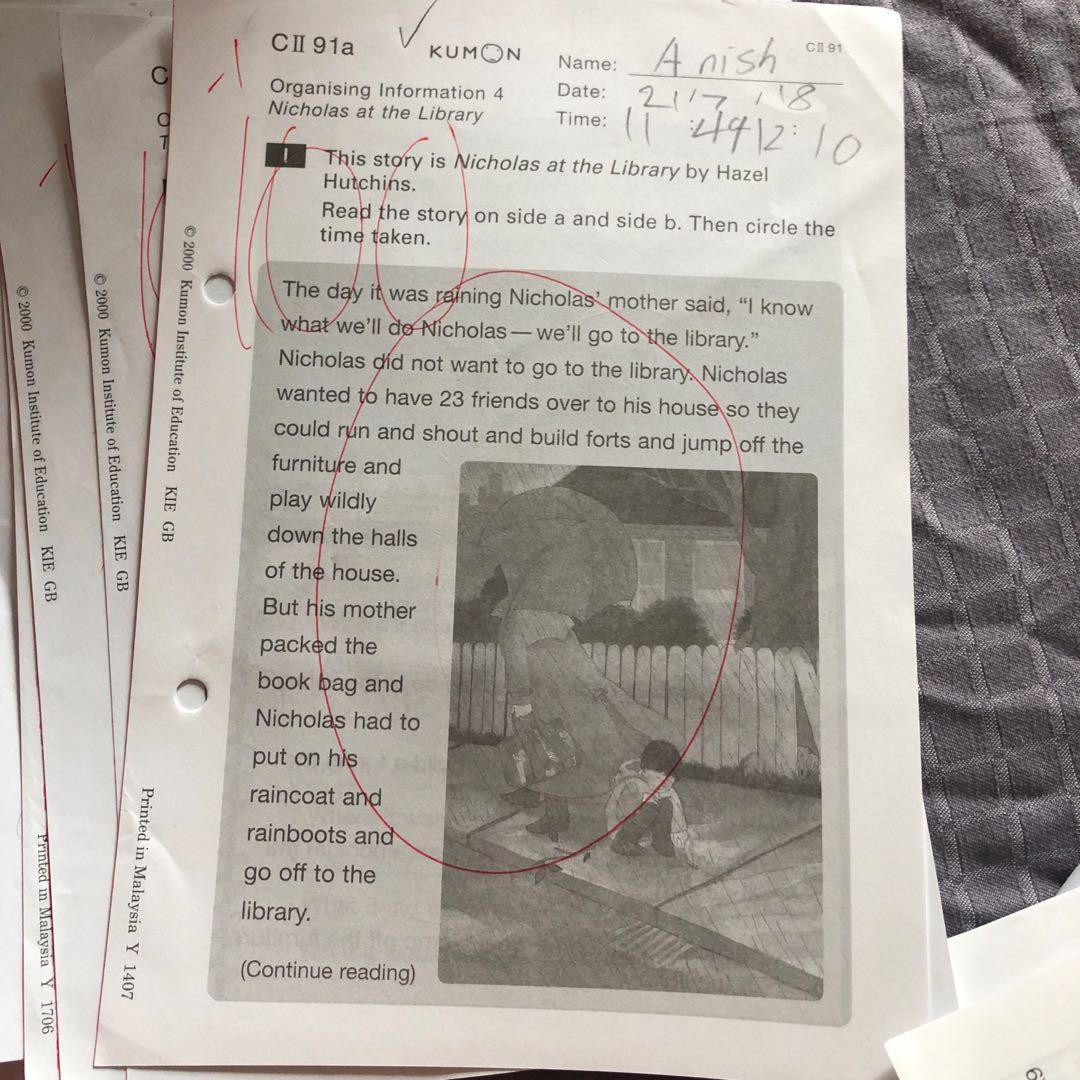 CII 91a
KUMON
CII 91
Name: Anish
Organising Information 4
Date: 21'7 '18
Nicholas at the Library
Time: 11 :49 12:10
1 This story is Nicholas at the Library by Hazel
Hutchins.
Read the story on side a and side b. Then circle the
time taken.
The day it was raining Nicholas' mother said, “I know
what we'll do Nicholas — we'll go to the library.”
Nicholas did not want to go to the library. Nicholas
wanted to have 23 friends over to his house so they
could run and shout and build forts and jump off the
furniture and
play wildly
down the halls
of the house.
But his mother
packed the
book bag and
Nicholas had to
put on his
raincoat and
rainboots and
go off to the
library.
(Continue reading)
100
© 2000 Kumon Institute of Education KIE GB
Printed in Malaysia Y 1407
C
O
T
© 2000 Kumon Institute of Education KIE GB
© 2000 Kumon Institute of Education KIE GB
Printed in Malaysia Y 1706